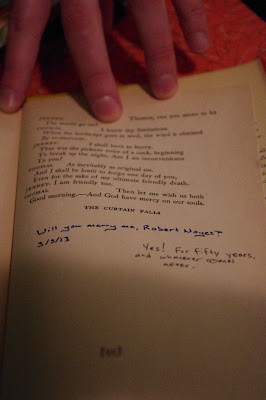 JENNET. Thomas, can you mean to let
The world go on?
THOMAS. I know my limitations.
When the landscape goes to seed, the wind is obsessed
By to-morrow.
JENNET. I shall have to hurry.
That was the pickaxe voice of a cock, beginning
To break up the night. Am I an inconvenience
To you?
THOMAS. As inevitably as original sin.
And I shall be loath to forgo one day of you,
Even for the sake of my ultimate friendly death.
JENNET. I am friendly too.
THOMAS. Then let me wish us both
Good morning.—And God have mercy on our souls.
THE CURTAIN FALLS
Will you marry me, Robert Noyes?
3/3/13
Yes! For fifty years,
and whatever comes
after.